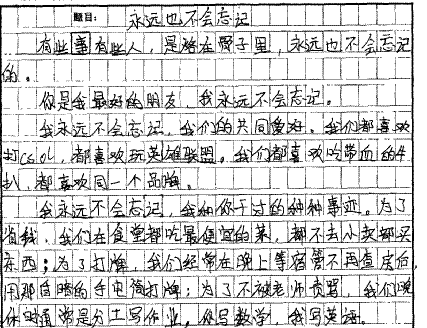 题目： 永远也不会忘记
有些事有些人，是烙在骨子里，永远也不会忘记
的。
你是我最好的朋友，我永远不会忘记。
我永远不会忘记，我们的共同爱好。我们都喜欢
打CSOL，都喜欢玩英雄联盟。我们都喜欢吃带血的牛
扒，都喜欢同一个品牌。
我永远不会忘记，我和你干过的种种事迹。为了
省钱，我们在食堂都吃最便宜的菜，都不去小卖部买
东西；为了打牌，我们经常在晚上等宿管不再查房后，
用那自暗的手电筒打牌；为了不被老师责骂，我们晚
作时通常是分工写作业，你写数学，我写英语。